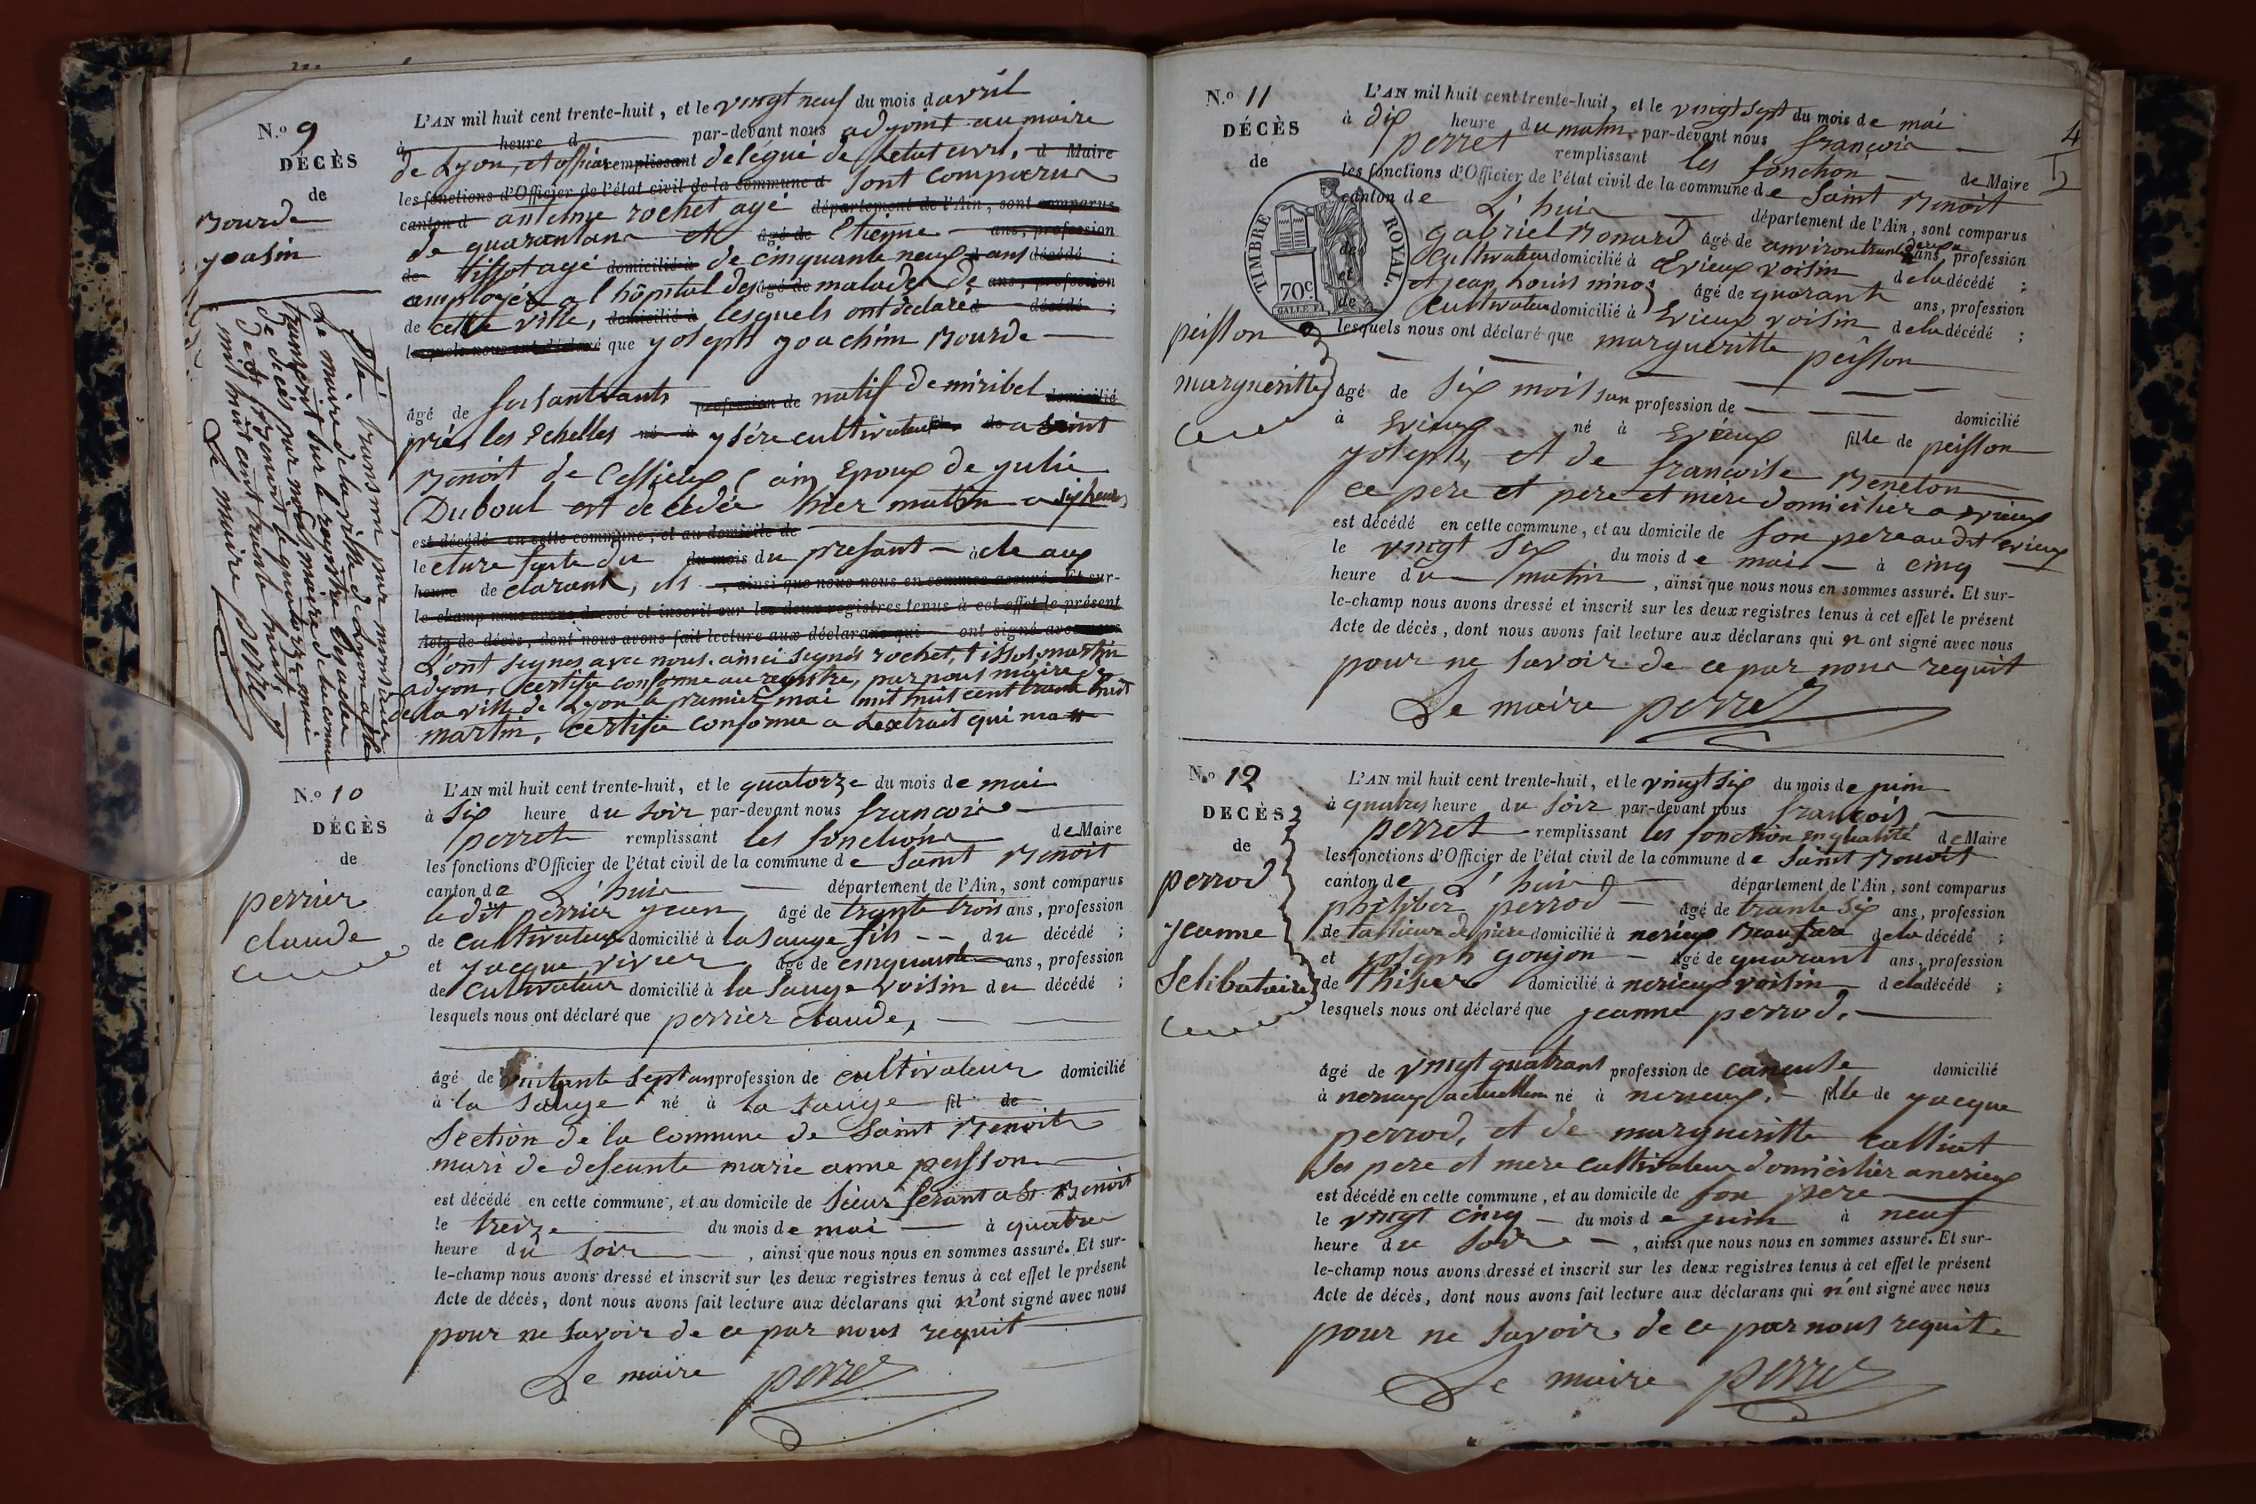 N.o 9
DÉCÈS
de
Bourde
joasin
L'AN mil huit cent trente-huit, et le vingt neuf du mois d avril
à heure d par-devant nous adjoint au maire
de Lyon, et officier remplissant délégué de letat civil, d Maire
les fonctions d'Officier de l'état civil de la commune d sont comparus
canton d antoine rochet agé département de l'Ain, sont comparus
de quarantans et âgé de Etienne ans, profession
de tissot agé domicilié à de cinquante neuf ans d décédé ;
employés a l'hôpital des âgé de malades de ans, profession
de cette ville, domicilié à lesquels ont déclaré d décédé ;
lesquels nous ont déclaré que joseph joachim Bourde
âgé de soisantants profession de natif de miribel domicilié
près les Echelles né à ysére cultivateur fils de a saint
Benoit de Cessieux (ain) Epoux de julie
Duboul est décédée hier matin a six heures
est décédé en cette commune, et au domicile de
le cture faite du du mois du presant à cle aux
heure de clarants, ils , ainsi que nous nous en sommes assuré. Et sur-
le-champ nous avons dressé et inscrit sur les deux registres tenus à cet effet le présent
Acte de décès, dont nous avons fait lecture aux déclarans qui ont signé avec nous
L'ont signés avec nous. ainsi signés rochet, tissot, martin
adjon, certifié conforme au registre, par nous maire
de la ville de Lyon le premier mai mil huit cent trante huit
martin, certifié conforme a Lextrait qui ma
été transmi par monsieur
Le maire de la ville de Lyon a été
transcrit sur le registre des actes
de décès par nous maire de la commune
de St Benoit le quatorze mai
mil huit cent trante huit
Le maire perret
N.o 10
DÉCÈS
de
perrier
claude
L'AN mil huit cent trente-huit, et le quatorze du mois de mai
à six heure du soir par-devant nous françois
perret remplissant les fonctions de Maire
les fonctions d'Officier de l'état civil de la commune de saint Benoit
canton de L'huis département de l'Ain, sont comparus
le dit perrier jean âgé de trante trois ans, profession
de cultivateur domicilié à la sauge fils du décédé ;
et jacque vivier âgé de cinquante ans, profession
de cultivateur domicilié à la sauge voisin du décédé ;
lesquels nous ont déclaré que perrier claude,
âgé de septan profession de cultivateur domicilié
à la sauge né à la sauge fil de
section de la commune de saint Benoit
mari de defeunte marie anne peysson
est décédé en cette commune, et au domicile de sieur ferant a St Benoit
le treize du mois de mai à quatre
heure du soir , ainsi que nous nous en sommes assuré. Et sur-
le-champ nous avons dressé et inscrit sur les deux registres tenus à cet effet le présent
Acte de décès, dont nous avons fait lecture aux déclarans qui n'ont signé avec nous
pour ne savoir de ce par nous requit
Le maire perret
N.o 11
DÉCÈS
de
peisson
margueritte
TIMBRE ROYAL.
70c.
4
5
L'AN mil huit cent trente-huit, et le vingt sept du mois de mai
à dix heure du matin par-devant nous françois
perret remplissant les fonction de Maire
les fonctions d'Officier de l'état civil de la commune de saint Benoit
canton de L'huis département de l'Ain, sont comparus
gabriel Bonard âgé de anviron trante deux ans, profession
de Cultivateur domicilié à Evieux voisin de la décédé ;
et jean louis ninos âgé de quarant ans, profession
de Cultivateur domicilié à Evieux voisin de la décédé ;
lesquels nous ont déclaré que margueritte peisson
âgé de six mois san profession de domicilié
à Evieux né à Evieux fille de peisson
joseph, et de françoise Beneton
ce pere et pere et mère domiciliér a evieux
est décédé en cette commune, et au domicile de son pere audit evieux
le vingt six du mois de mai à cinq
heure du matin , ainsi que nous nous en sommes assuré. Et sur-
le-champ nous avons dressé et inscrit sur les deux registres tenus à cet effet le présent
Acte de décès, dont nous avons fait lecture aux déclarans qui n ont signé avec nous
pour ne savoir de ce par nous requit
Le maire perret
N.o 12
DÉCÈS
de
perrod
jeanne
Selibataire
L'AN mil huit cent trente-huit, et le vingt six du mois de juin
à quatres heure du soir par-devant nous françois
perret remplissant les fonction en qualité de Maire
les fonctions d'Officier de l'état civil de la commune de saint Benoit
canton de L'huis département de l'Ain, sont comparus
philiber perrod âgé de trante six ans, profession
de tallieur de piere domicilié à nerieux Beaufrere de la décédé ;
et joseph goujon âgé de quarant ans, profession
de thiser domicilié à nerieux voisin de la décédé ;
lesquels nous ont déclaré que jeanne perrod.
âgé de vingt quatrans profession de domicilié
à nerieux actuellem né à nerieux. fille de jacque
perrod, et de margueritte calliat
ses pere et mere cultivateur domiciliér a nerieux
est décédé en cette commune, et au domicile de son pere
le vingt cinq du mois de juin à neuf
heure du soir , ainsi que nous nous en sommes assuré. Et sur-
le-champ nous avons dressé et inscrit sur les deux registres tenus à cet effet le présent
Acte de décès, dont nous avons fait lecture aux déclarans qui n'ont signé avec nous
pour ne savoir de ce par nous requit
Le maire perret